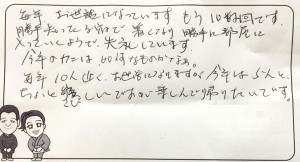 毎年、お世話になっています。もう10数回です。
勝手知ったる宿で着くなり勝手に部屋に
入っていしようで、失礼しています。
今年のカニは如何なものかなぁ。
毎年10人近くお世話になりますが今年は5人と、
ちょっと淋しいですが楽しんで帰りたいです。